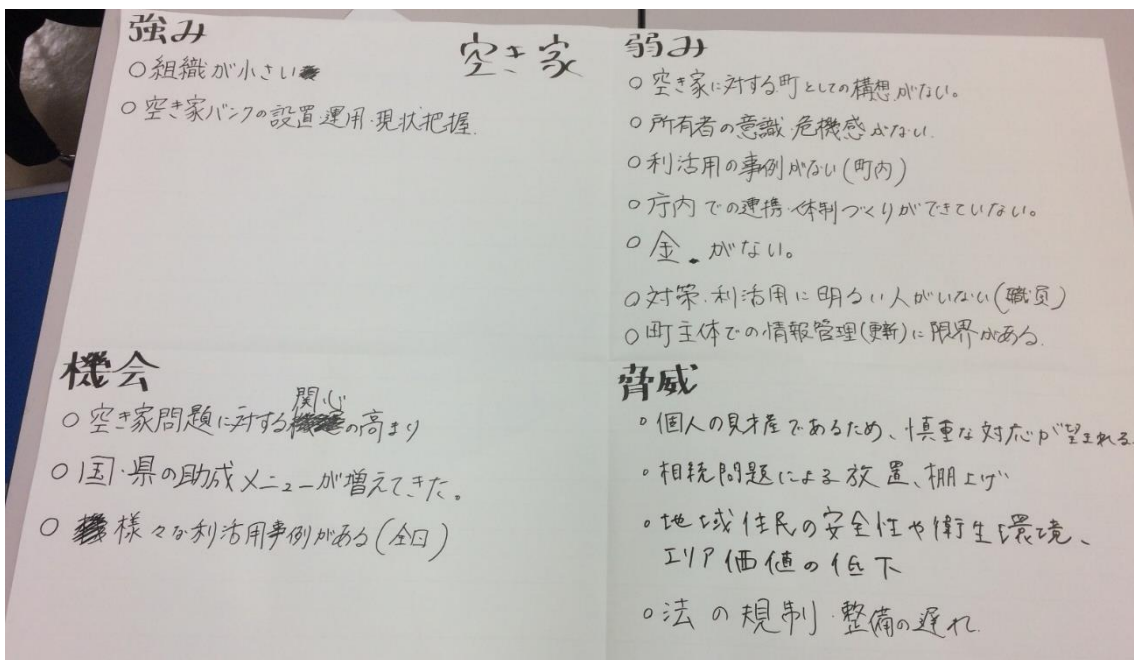 空き家
強み
○組織が小さい
○空き家バンクの設置・運用・現状把握.
弱み
○空き家に対する町としての構想がない。
○所有者の意識・危機感がない.
○利活用の事例がない(町内)
○庁内での連携・体制づくりができていない。
○金.がない。
○対策・利活用に明るい人がいない(職員)
○町主体での情報管理(更新)に限界がある.
機会
○空き家問題に対する関心の高まり
○国・県の助成メニューが増えてきた。
○様々な利活用事例がある(全日)
脅威
○個人の財産であるため、慎重な対応が望まれる.
○相続問題による放置、棚上げ
○地域住民の安全性や衛生環境、
エリア価値の低下
○法の規制・整備の遅れ.